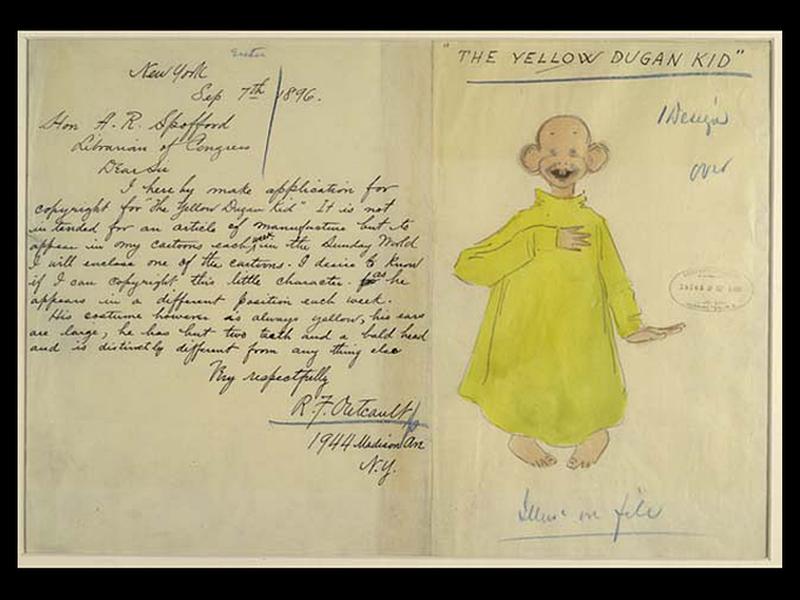 New York
Sep 7th 1896.
Hon A. R. Spofford
Librarian of Congress
Dear Sir
I hereby make application for
copyright for "The Yellow Dugan Kid" It is not
intended for an article of manufacture but to
appear in my cartoons each week in the Sunday World
I will enclose one of the cartoons. I desire to know
if I can copyright this little character. as he
appears in a different position each week.
His costume however is always yellow, his ears
are large, he has but two teeth and a bald head
and is distinctly different from any thing else
Very respectfully
R. F. Outcault
1944 Madison Av
N.Y.
"THE YELLOW DUGAN KID"
1 Design
over
on file